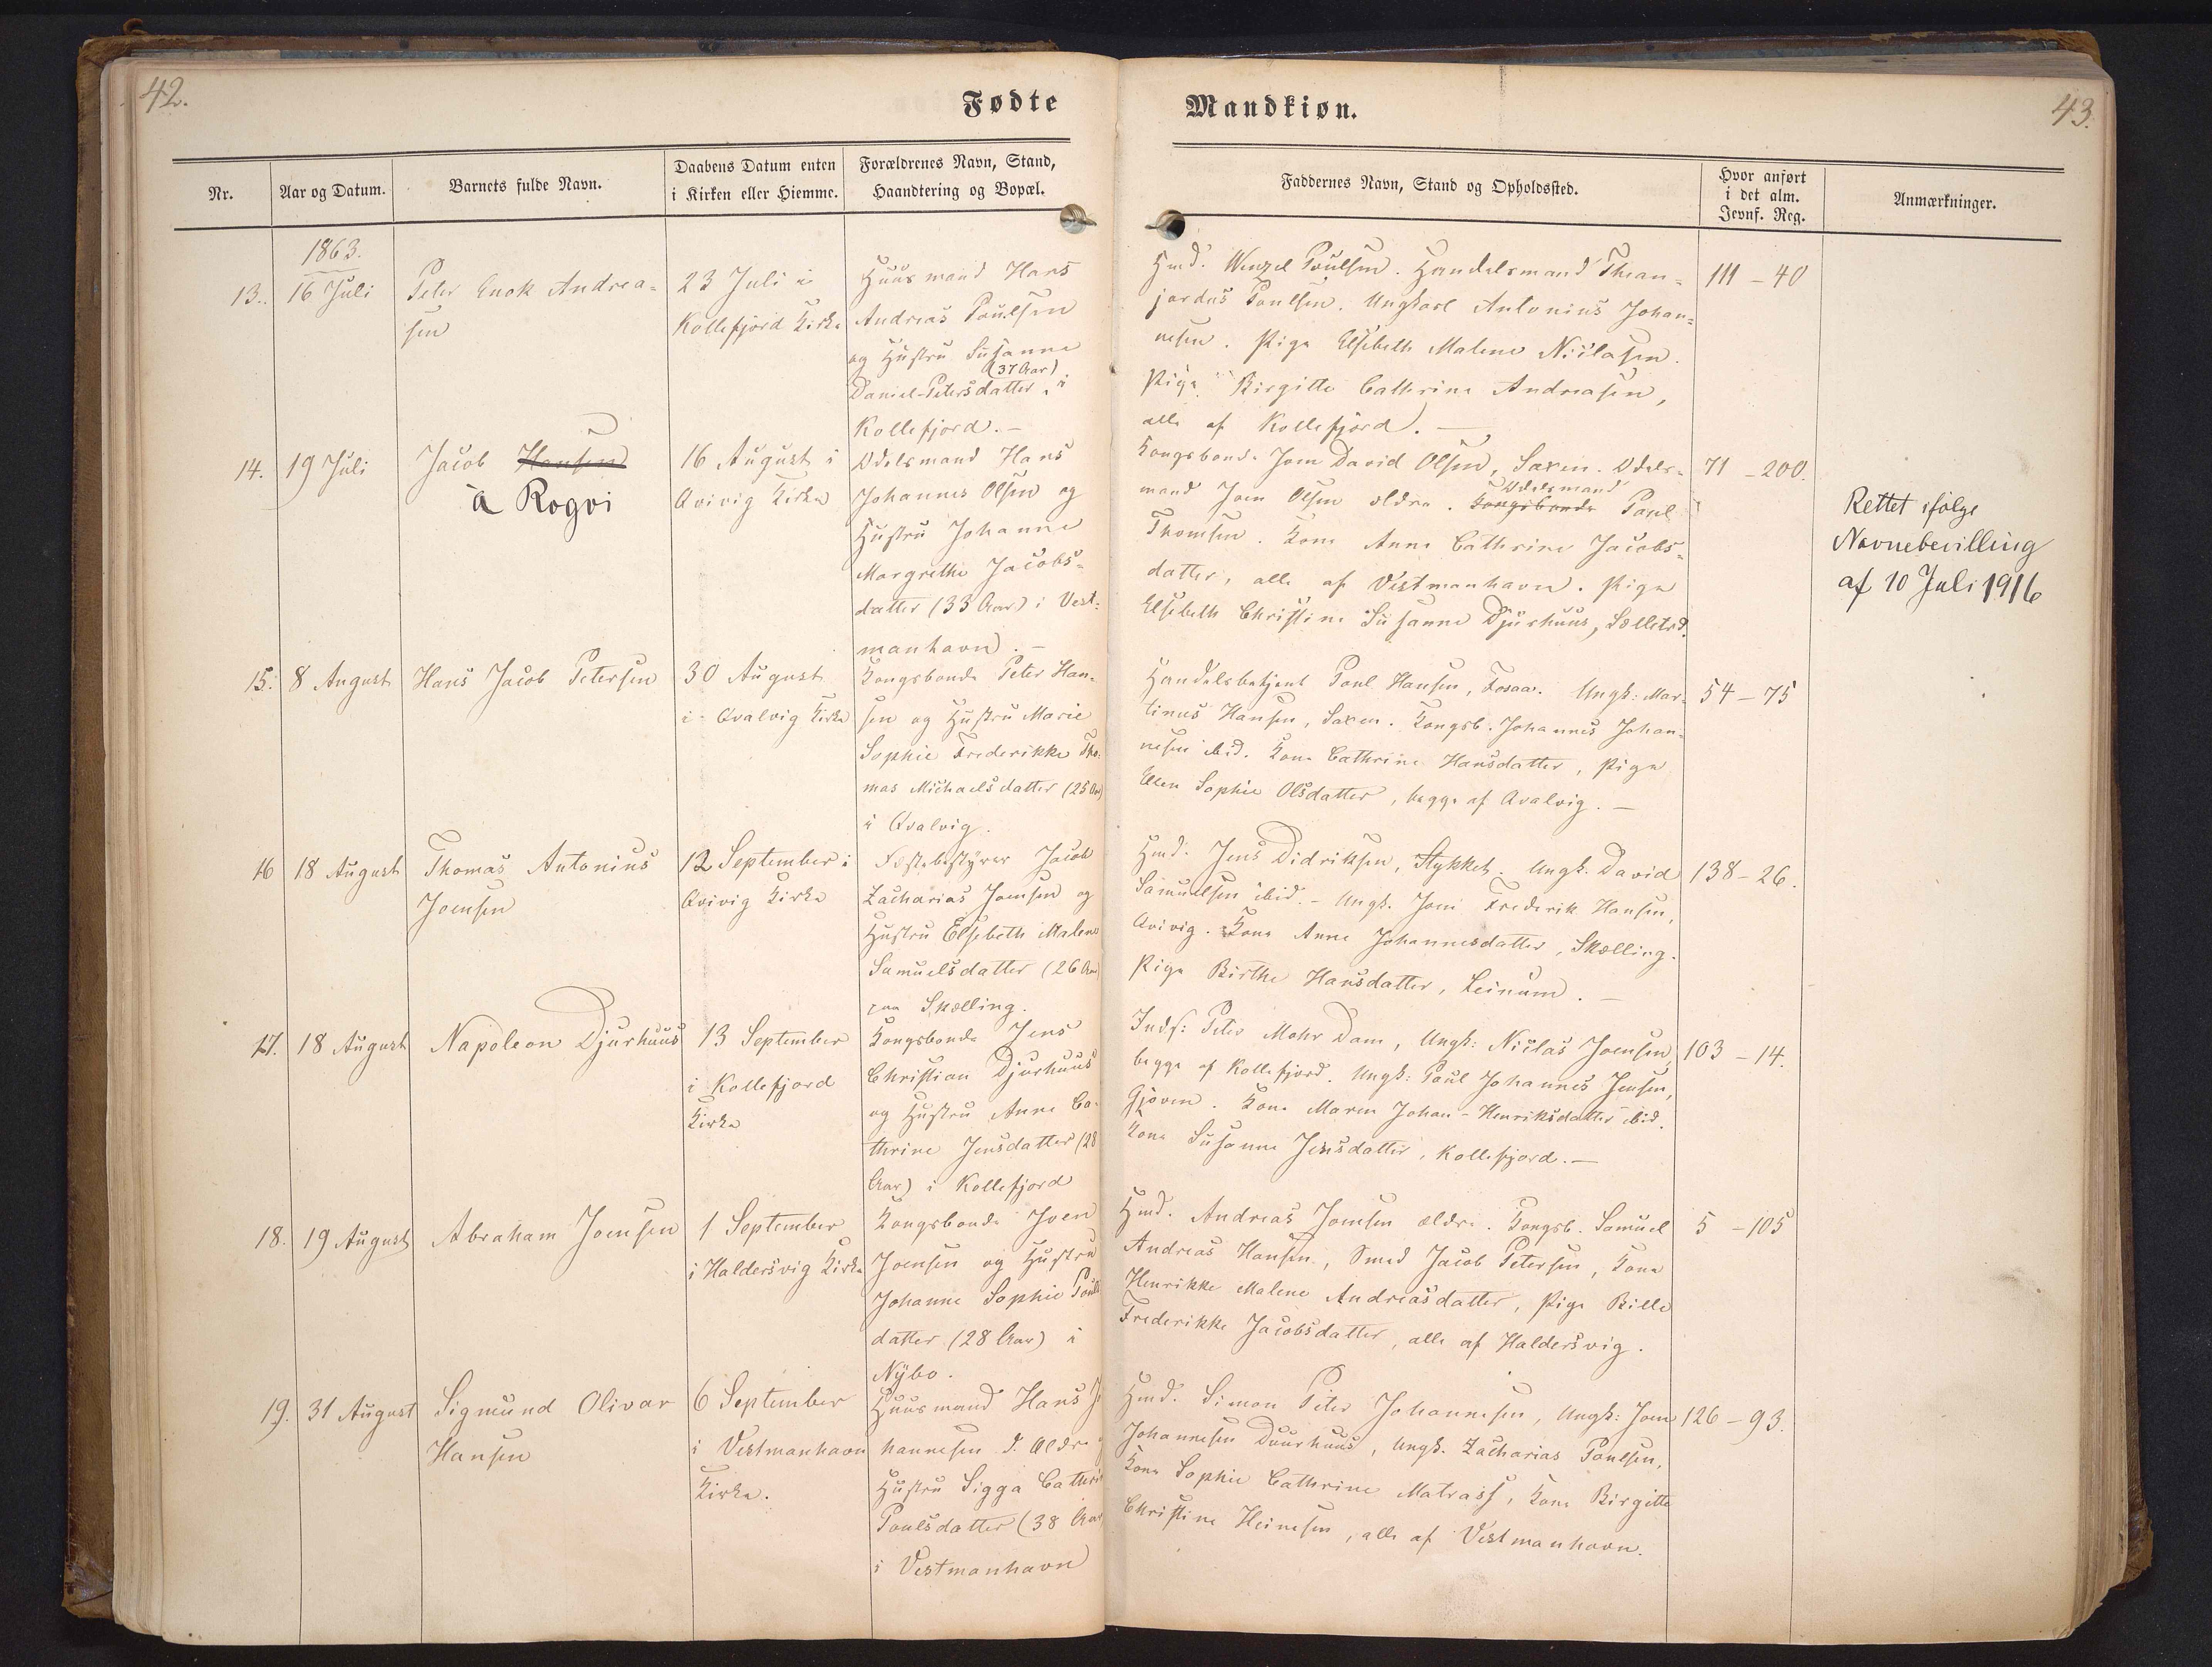 42.
Fødte
Nr.
Aar og Datum.
Barnets fulde Navn.
Daabens Datum enten
i Kirken eller Hiemme.
Forældrenes Navn, Stand,
Haandtering og Bopæl.
1863.
13.
16 Juli
Peter Enok Andrea-
sen
23 Juli i
Kollefjord Kirke
Huusmand Hans
Andreas Poulsen
og Hustru Susanna
(37 Aar)
Daniel-Petersdatter, i
Kollefjord. —
14.
19 Juli
Jacob Hansen
á Rogvi
16 August i
Qvivig Kirke
Odelsmand Hans
Johannes Olsen og
Hustru Johanne
Margrethe Jacobs-
datter (33 Aar) i Vest-
manhavn. —
15.
8 August
Hans Jacob Petersen
30 August
i Qvalvig Kirke
Kongsbonde Peter Han-
sen og Hustru Marie
Sophie Frederikke Tho-
mas Michaelsdatter (25 Aar)
i Qvalvig.
16
18 August
Thomas Antonius
Joensen
12 September i
Qvivig Kirke
Festebestyrer Jacob
Zacharias Joensen og
Hustru Elsebeth Malene
Samuelsdatter (26 Aar)
paa Skælling.
17.
18 August
Napoleon Djurhuus
13 September
i Kollefjord
Kirke
Kongsbonde Jens
Christian Djurhuus
og Hustru Anne Ca-
thrine Jensdatter (28
Aar) i Kollefjord
18.
19 August
Abraham Joensen
1 September
i Haldersvig Kirke
Kongsbonde Joen
Joensen og Hustru
Johanne Sophie Pouls
datter (28 Aar) i
Nybo.
19.
31 August
Sigmund Olivar
Hansen
6 September
i Vestmanhavn
Kirke.
Huusmand Hans Jo
hannesen d. Ældre
Hustru Sigga Cathri
Poulsdatter (38 Aar
i Vestmanhavn
Mandkiøn.
43.
Faddernes Navn, Stand og Opholdssted.
Hvor anført
i det alm.
Jevnf. Reg.
Anmærkninger.
Hmd. Wenzel Poulsen. Handelsmand Thean-
jardus Poulsen. Ungkarl Antonius Johan-
nesen. Pige Elsebeth Malene Niclasen.
Pige Birgitte Cathrine Andreasen,
alle af Kollefjord. —
111 – 40
Kongsbonde Joen David Olsen, Saxen. Odels-
mand Joen Olsen ældre. Kongsbonde Odelsmand Poul
Thomsen. Kone Anne Cathrine Jacobs-
datter, alle af Vestmanhavn. Pige
Elsebeth Christine Susanne Djurhuus, Selletrd.
71 – 200.
Rettet ifølge
Navnebevilling
af 10 Juli 1916
Handelsbetjent Poul Hansen, Fosaa. Ungk: Mar-
tinus Hansen, Saxen. Kongsb. Johannes Johan-
nesen ibid. Kone Cathrine Hansdatter, Pige
Ellen Sophie Olsdatter, begge af Qvalvig. —
54 – 75
Hmd. Jens Didriksen, Stykket. Ungk. David
Samuelsen ibid. – Ungk. Joen Frederik Hansen,
Qvivig. Kone Anne Johannesdatter, Skælling.
Pige Birthe Hansdatter, Leinum. —
138 – 26.
Inds: Peter Mohr Dam, Ungk: Niclas Joensen,
begge af Kollefjord. Ungk: Poul Johannes Jensen,
Gjoven. Kone Maren Johan-Henriksdatter ibid.
Kone Susanne Jensdatter, Kollefjord. —
103 – 14.
Hmd. Andreas Joensen ældre. Kongsb. Samuel
Andreas Hansen, Smed Jacob Petersen, Kone
Henrikke Malene Andreasdatter, Pige Bille
Frederikke Jacobsdatter, alle af Haldersvig.
5 – 105
Hmd. Simon Peter Johannesen, Ungk: Joen
Johannesen Duurhuus, Ungk. Zacharias Poulsen,
Kone Sophie Cathrine Matrass, Kone Birgitte
Christine Heinesen, alle af Vestmanhavn.
126 – 93.